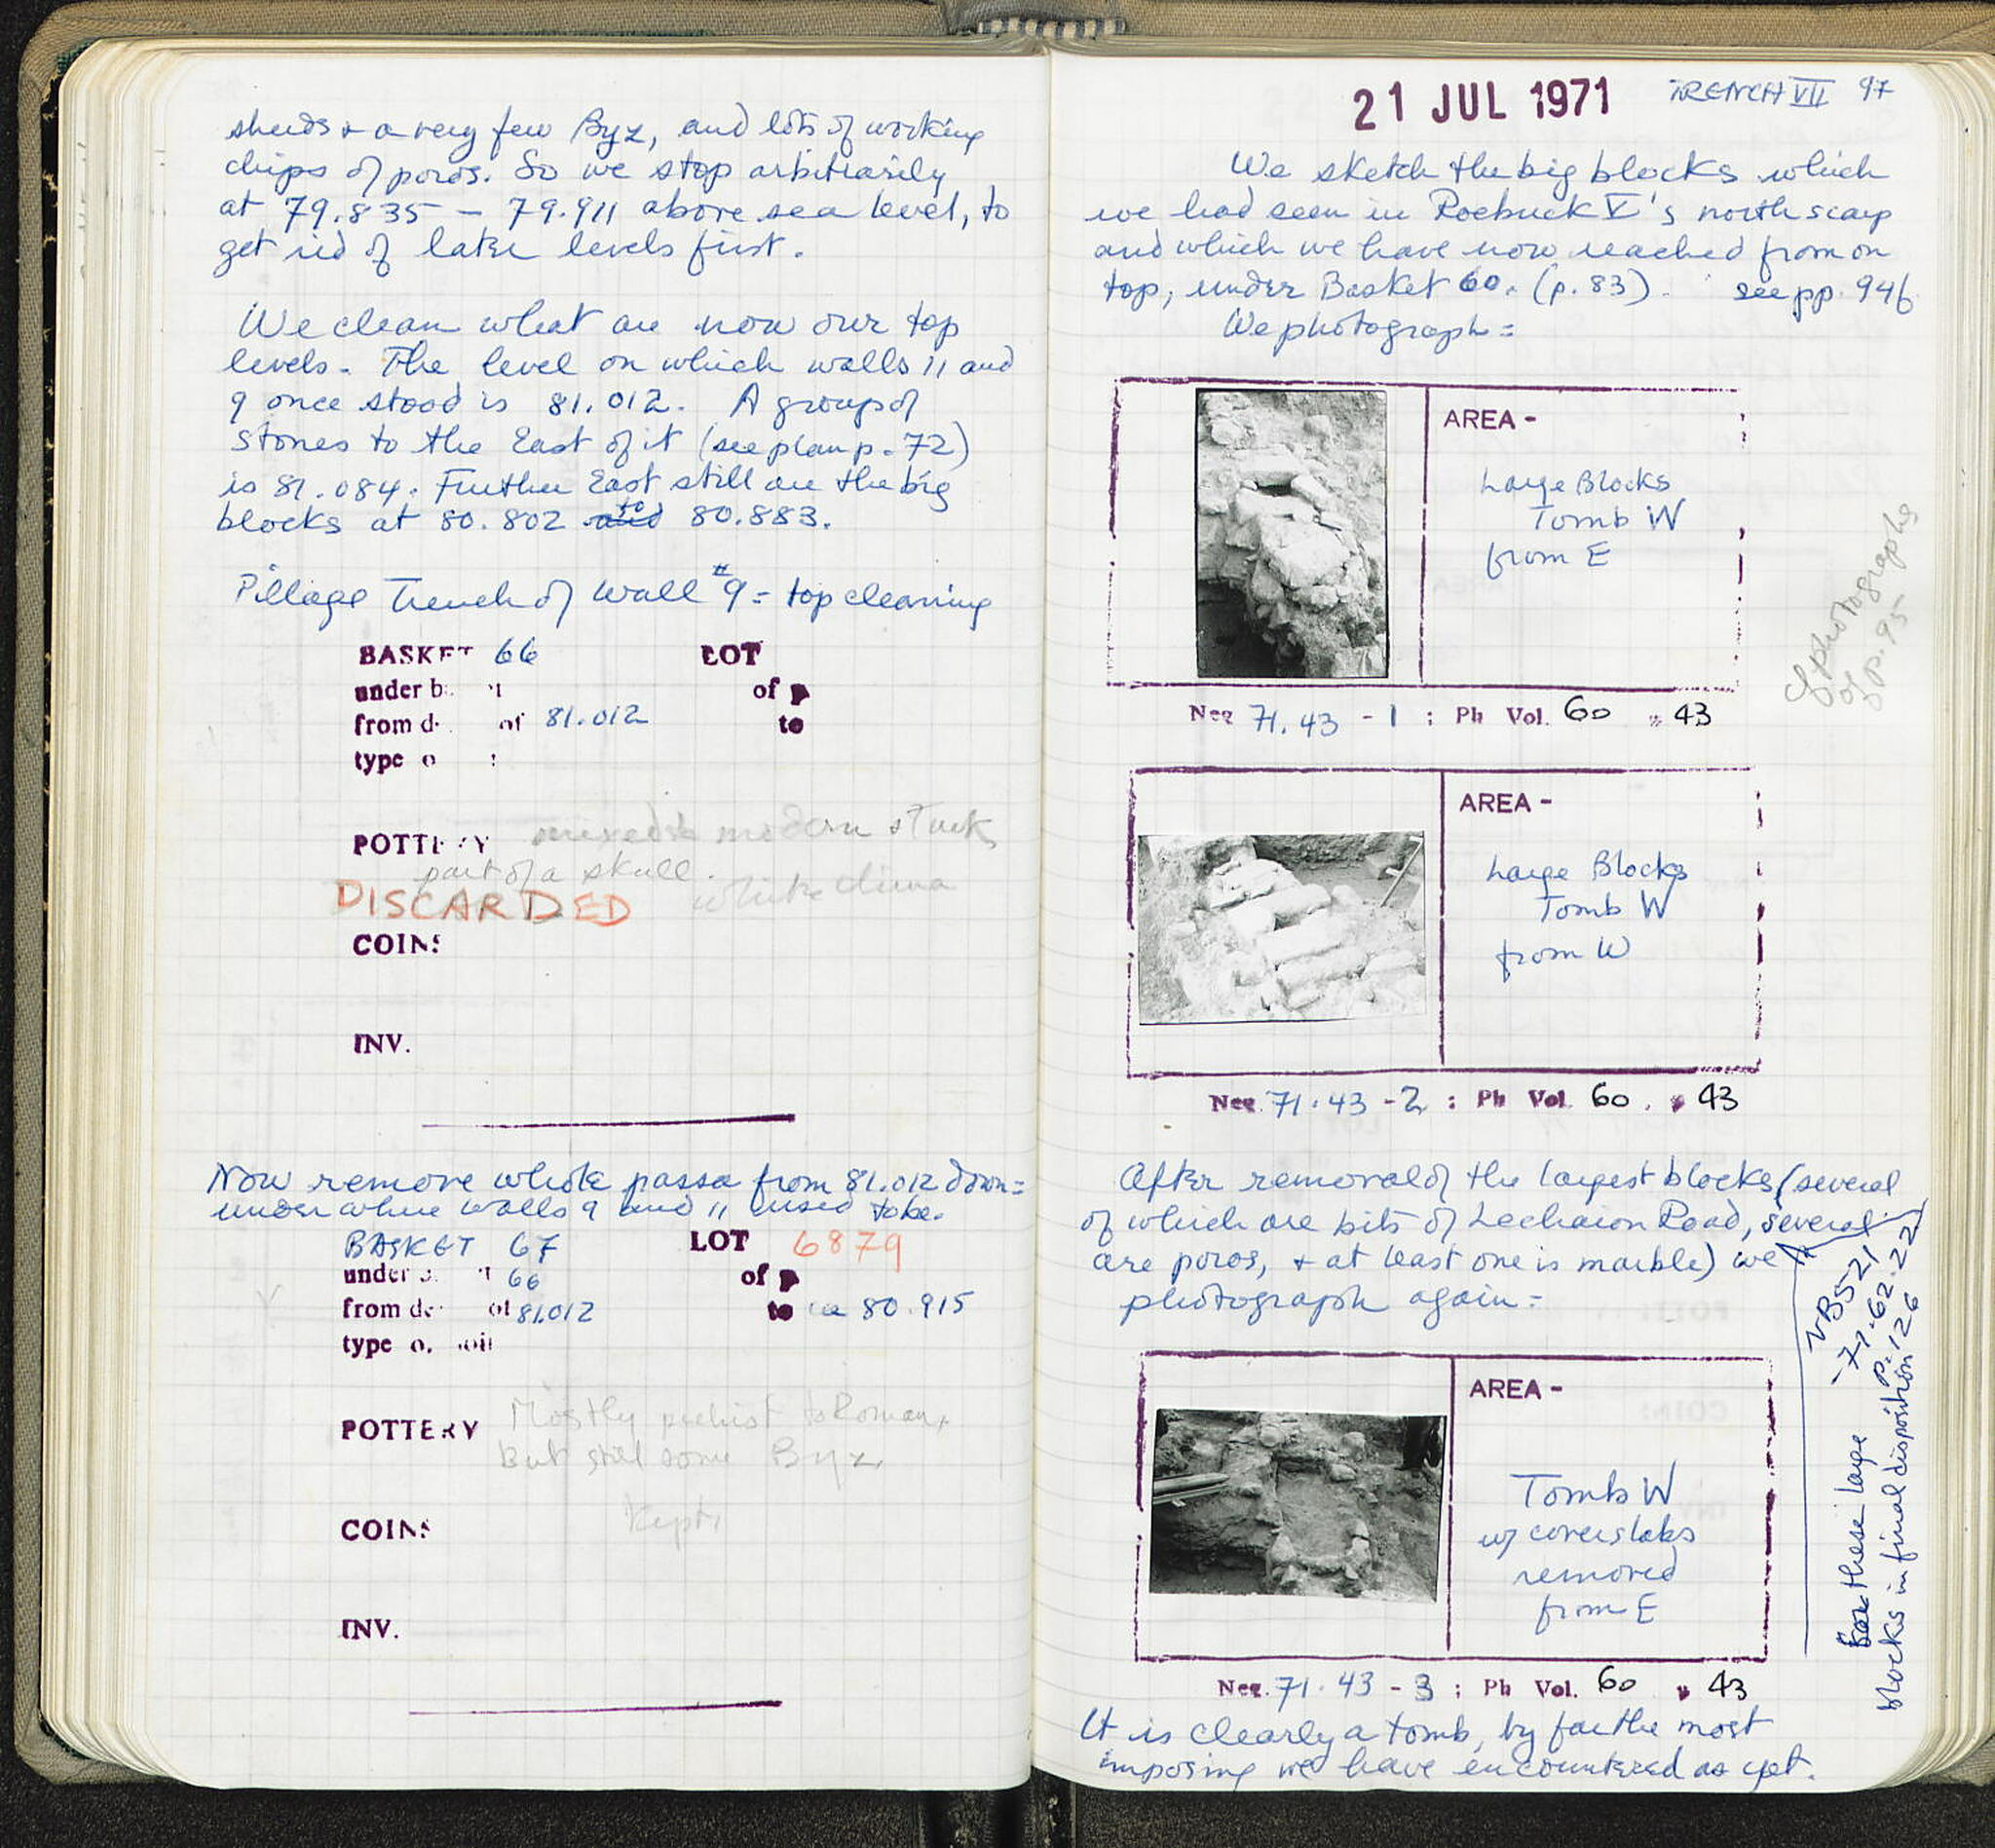 sherds + a very few Byz, and lots of working
chips of poros. So we stop arbitrarily
at 79.835 - 79.911 above sea level, to
get rid of later levels first.
We clean what are now our top
levels. The level on which walls 11 and
9 once stood is 81.012. A group of
stones to the East of it (see plan p. 72)
is 81.084. Further East still are the big
blocks at 80.802 to 80.883.
Pillage Trench of Wall #9 = top cleaning
BASKET 66 LOT
under b t of p
from d of 81.012 to
type o :
POTTERY mixed modern stuck
part of a skull.
white china
DISCARDED
COINS
INV.
Now remove whole passa from 81.012 down =
under where walls 9 and 11 used to be.
BASKET 67 LOT 6879
under 66 of p
from de of 81.012 to ca 80.915
type o. soil
POTTERY Mostly prehist to Roman,
But still some Byz.
Kept.
COINS
INV.
21 JUL 1971 TRENCH VII 97
We sketch the big blocks which
we had seen in Roebuck V's north scarp
and which we have now reached from on
top, under Basket 60. (p. 83). see pp. 94f
We photograph =
AREA -
Large Blocks
Tomb W
from E
Neg 71.43 - 1 ; Ph Vol. 60 43
Cf photographs
of p. 95
AREA -
Large Blocks
Tomb W
from W
Neg. 71.43 - 2 ; Ph Vol. 60. 43
After removal of the largest blocks (several
of which are bits of Lechaion Road, several
are poros, + at least one is marble) we
photograph again =
NB 521
71.62.22
p. 126
these large
blocks in final disposition
AREA -
Tomb W
w/ coverslabs
removed
from E
Neg. 71.43 - 3 ; Ph Vol. 60 43
It is clearly a tomb, by far the most
imposing we have encountered as yet.